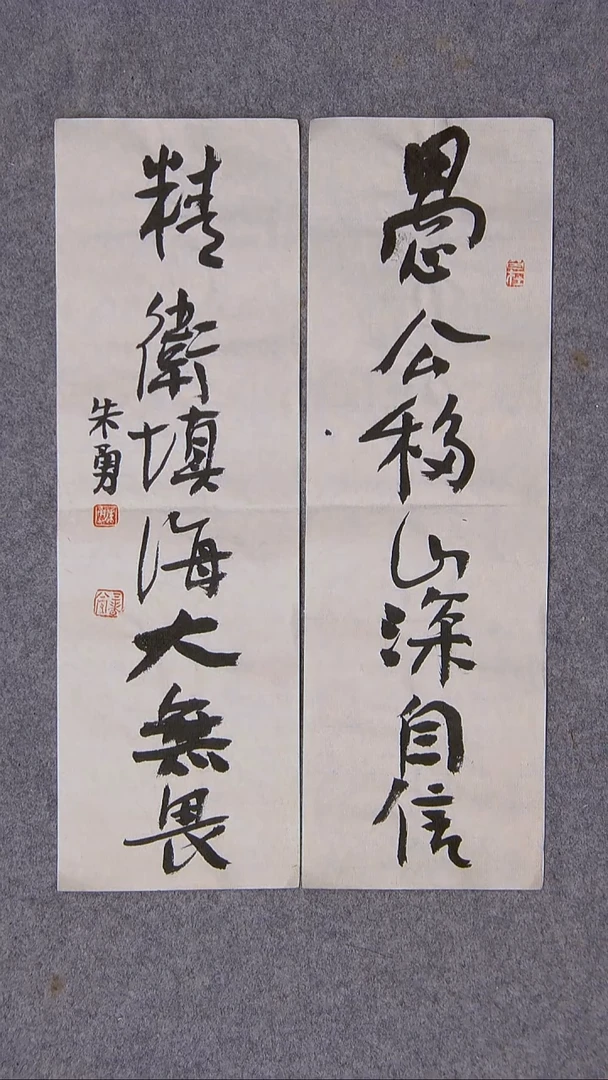 愚公移山深自信
精衛填海大無畏
朱勇